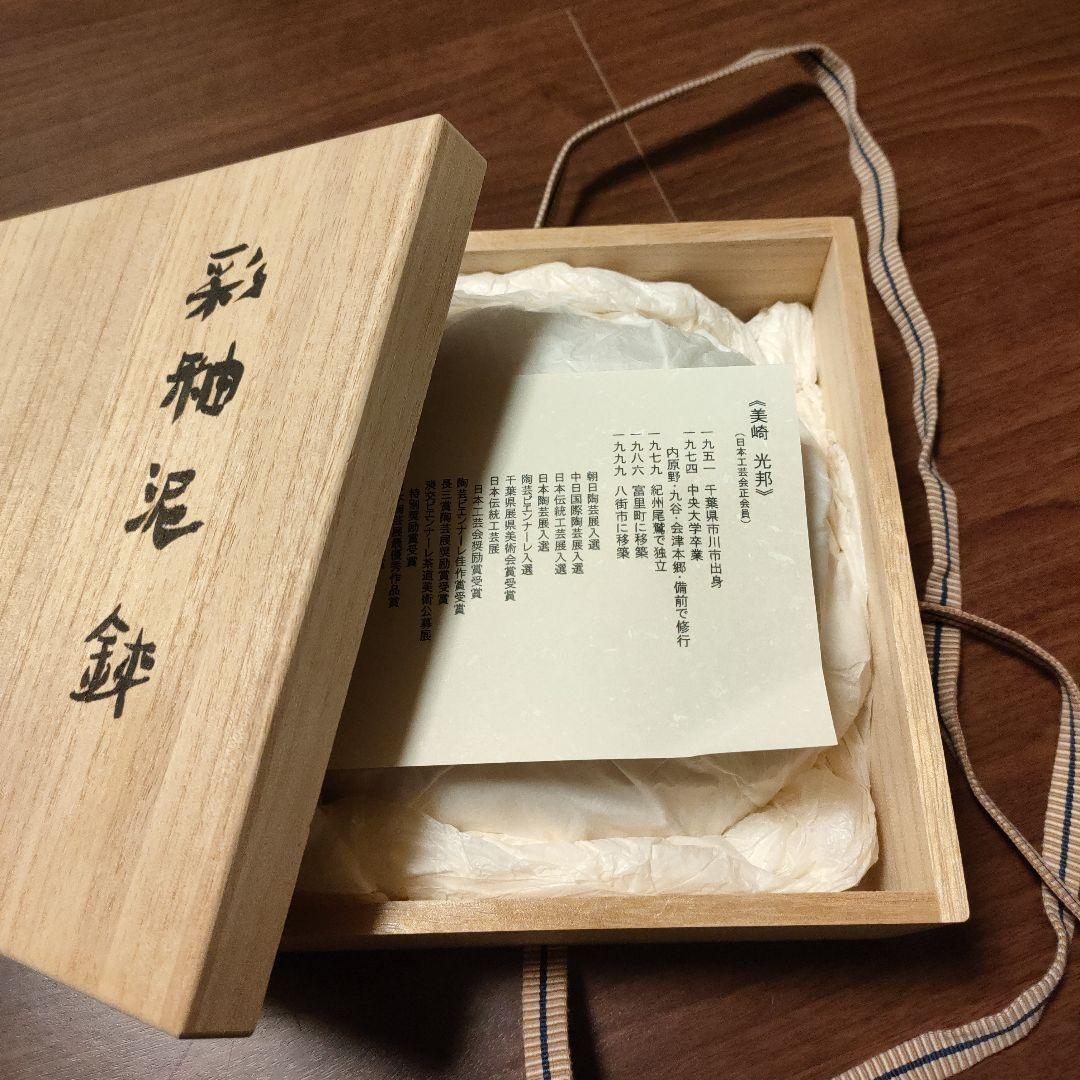 彩釉泥鉢
《美崎 光邦》
(日本工芸会正会員)
一九五一 千葉県市川市出身
一九七四 中央大学卒業
内原野・九谷・会津本郷・備前で修行
一九七九 紀州尾鷲で独立
一九八六 富里町に移築
一九九九 八街市に移築
朝日陶芸展入選
中日国際陶芸展入選
日本伝統工芸展入選
日本陶芸展入選
陶芸ビエンナーレ入選
千葉県展県美術会賞受賞
日本伝統工芸展
日本工芸会奨励賞受賞
陶芸ビエンナーレ佳作賞受賞
長三賞陶芸展奨励賞受賞
淡交ビエンナーレ茶道美術公募展
特別奨励賞受賞
陶芸展最優秀作品賞